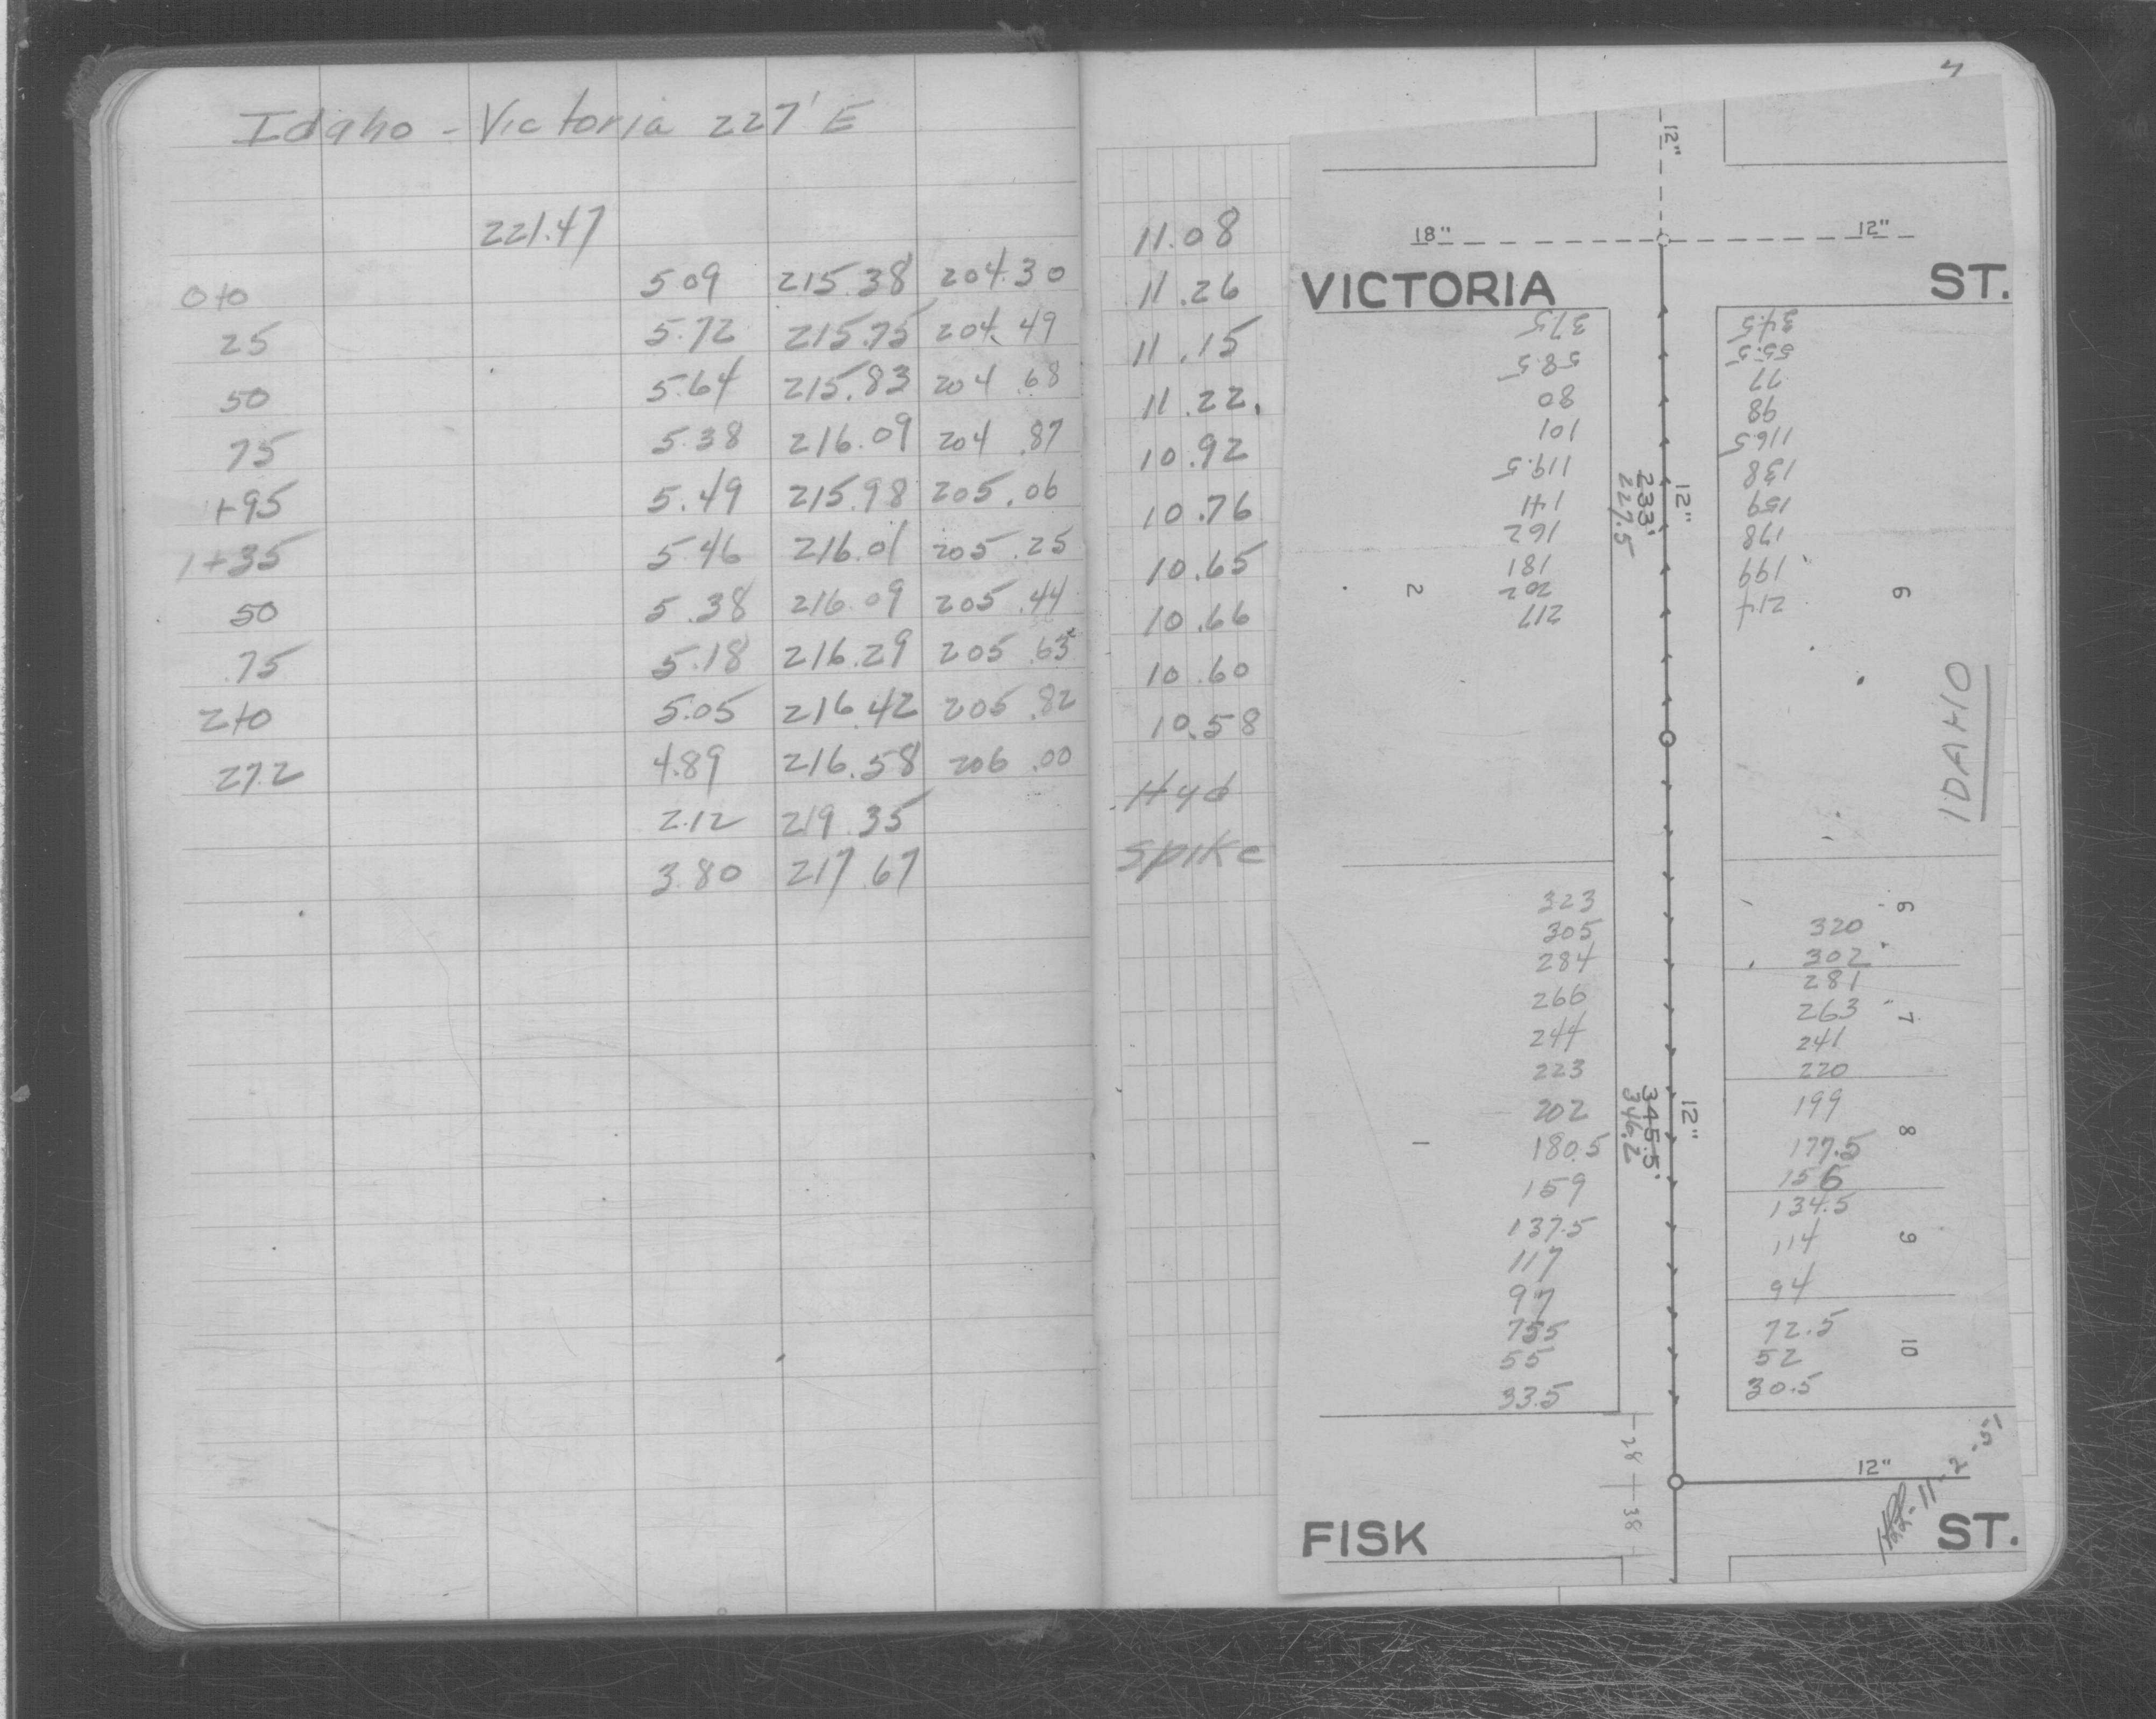 Idaho - Victoria 227' E
221.47 11.08
0+0 5.09 215.38 204.30 11.26
25 5.72 215.75 204.49 11.15
50 5.64 215.83 204.68 11.22
75 5.38 216.09 204.87 10.92
1+95 5.49 215.98 205.06 10.76
1+35 5.46 216.01 205.25 10.65
50 5.38 216.09 205.44 10.66
75 5.18 216.29 205.63 10.60
2+0 5.05 216.42 205.82 10.58
27.2 4.89 216.58 206.00 Hyd
2.12 219.35 Spike
3.80 217.67
12"
18" 12"
VICTORIA ST.
37.5 34.5
58.5 55.5
80 77
101 98
119.5 116.5
141 138
162 159
181 178
202 199
217 214
12"
233'
227.5
2 6
IDAHO
323 6
305 320
284 302
266 281
244 263 7
223 241
202 220
180.5 199 8
159 177.5
137.5 156
117 134.5
97 114 9
75.5 94
55 72.5 10
33.5 52
30.5
12"
345.5'
346.2
1
28
38
12"
11-2-51
FISK ST.